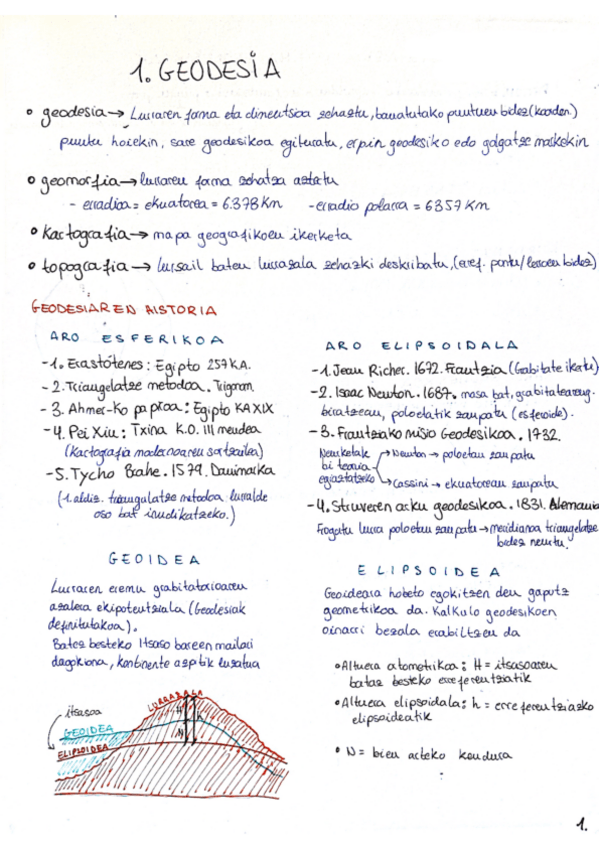 1. GEODESIA
• geodesia → Lurraren forma eta dimentsioa zehaztu, banatutako puntuen bidez (koorden.)
puntu hoiekin, sare geodesikoa egituratu, erpin geodesiko edo galgatze markekin
• geomorfia → lurraren forma zehatza aztertu
- erradioa = ekuatorea = 6.378 Km - erradio polarra = 6357 Km
• Kartografia → mapa geografikoen ikerketa
• topografia → lursail baten lurrazala zehazki deskribatu, (erref. puntu/lerroen bidez)
GEODESIAREN HISTORIA
ARO ESFERIKOA
-1. Erastótenes: Egipto 257 K.A.
-2. Triangelatze metodoa. Trigonom.
-3. Ahmer-Ko papiroa: Egipto KA XIX
-4. Pei Xiu: Txina K.O. III mendea
(Kartografia modernoaren sortzailea)
-5. Tycho Brahe. 1579. Danimarka
(1. aldiz. triangulatze metodoa lurralde
oso bat irudikatzeko.)
ARO ELIPSOIDALA
-1. Jean Richer. 1672. Frantzia (Grabitate ikertu)
-2. Isaac Newton. 1687. masa bat, grabitatearen
biratzean, poloetatik zanpatu (esferoide).
-3. Frantziako misio Geodesikoa. 1732.
Neurketak bi teoria egiaztatzeko
→ Newton → poloetan zanpatu
→ Cassini → ekuatorean zanpatu
-4. Struveren arku geodesikoa. 1831. Alemania
Frogatu lurra poloetan zanpatu → meridianoa triangelatze
bidez neurtu.
GEOIDEA
Lurraren eremu grabitatorioaren
azalera ekipotentziala (Geodesiak
definitutakoa).
Batez besteko Itsaso bareen mailari
dagokiona, kontinente azpitik luzatua
ELIPSOIDEA
Geoideara hobeto egokitzen den gaputz
geometrikoa da. Kalkulo geodesikoen
oinarri bezala erabiltzen da
• Altuera ortometrikoa: H = itsasoaren
bataz besteko erreferentziatik
• Altuera elipsoidala: h = erreferentziazko
elipsoideatik
• N = bien arteko kendura
itsasoa
LURRAZALA
GEOIDEA
ELIPSOIDEA
H
h
N
1.